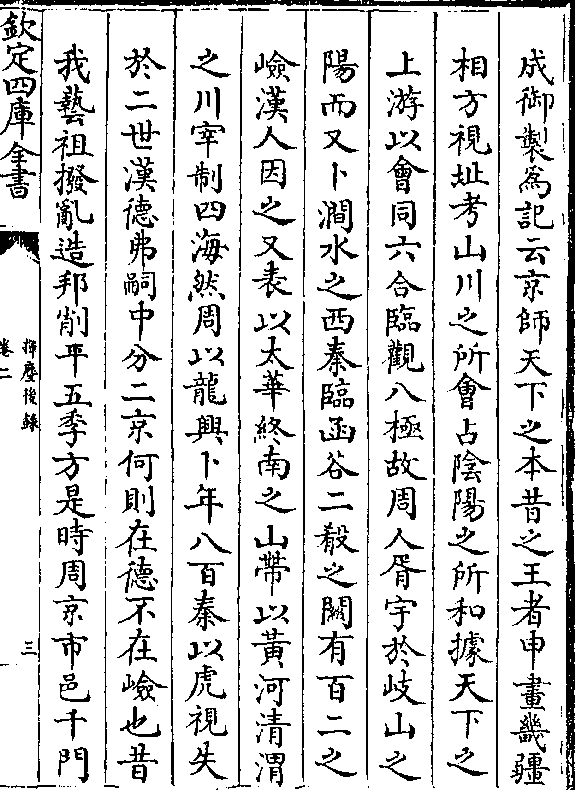 成御製爲記云京師天下之本昔之王者申畫畿疆
相方視址考山川之所會占陰陽之所和據天下之
上游以會同六合臨觀八極故周人胥宇於岐山之
陽而又卜澗水之西秦臨函谷二殽之關有百二之
嶮漢人因之又表以太華終南之山帶以黄河清渭
之川宰制四海然周以龍興卜年八百秦以虎視失
於二世漢德弗嗣中分二京何則在德不在嶮也昔
我藝祖撥亂造邦削平五季方是時周京市邑千門
欽定四庫全書
揮麈後錄
卷二
三